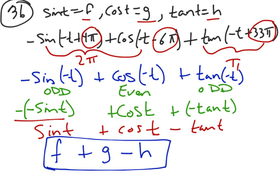 36 sint=f, cost=g, tant=h
-sin(-t+4π)+cos(-t-6π)+tan(-t+33π)
2π π
-Sin(-t) + Cos(-t) + tan(-t)
ODD Even ODD
-(-Sint) +Cost +(-tant)
Sint + cost - tant
f + g - h